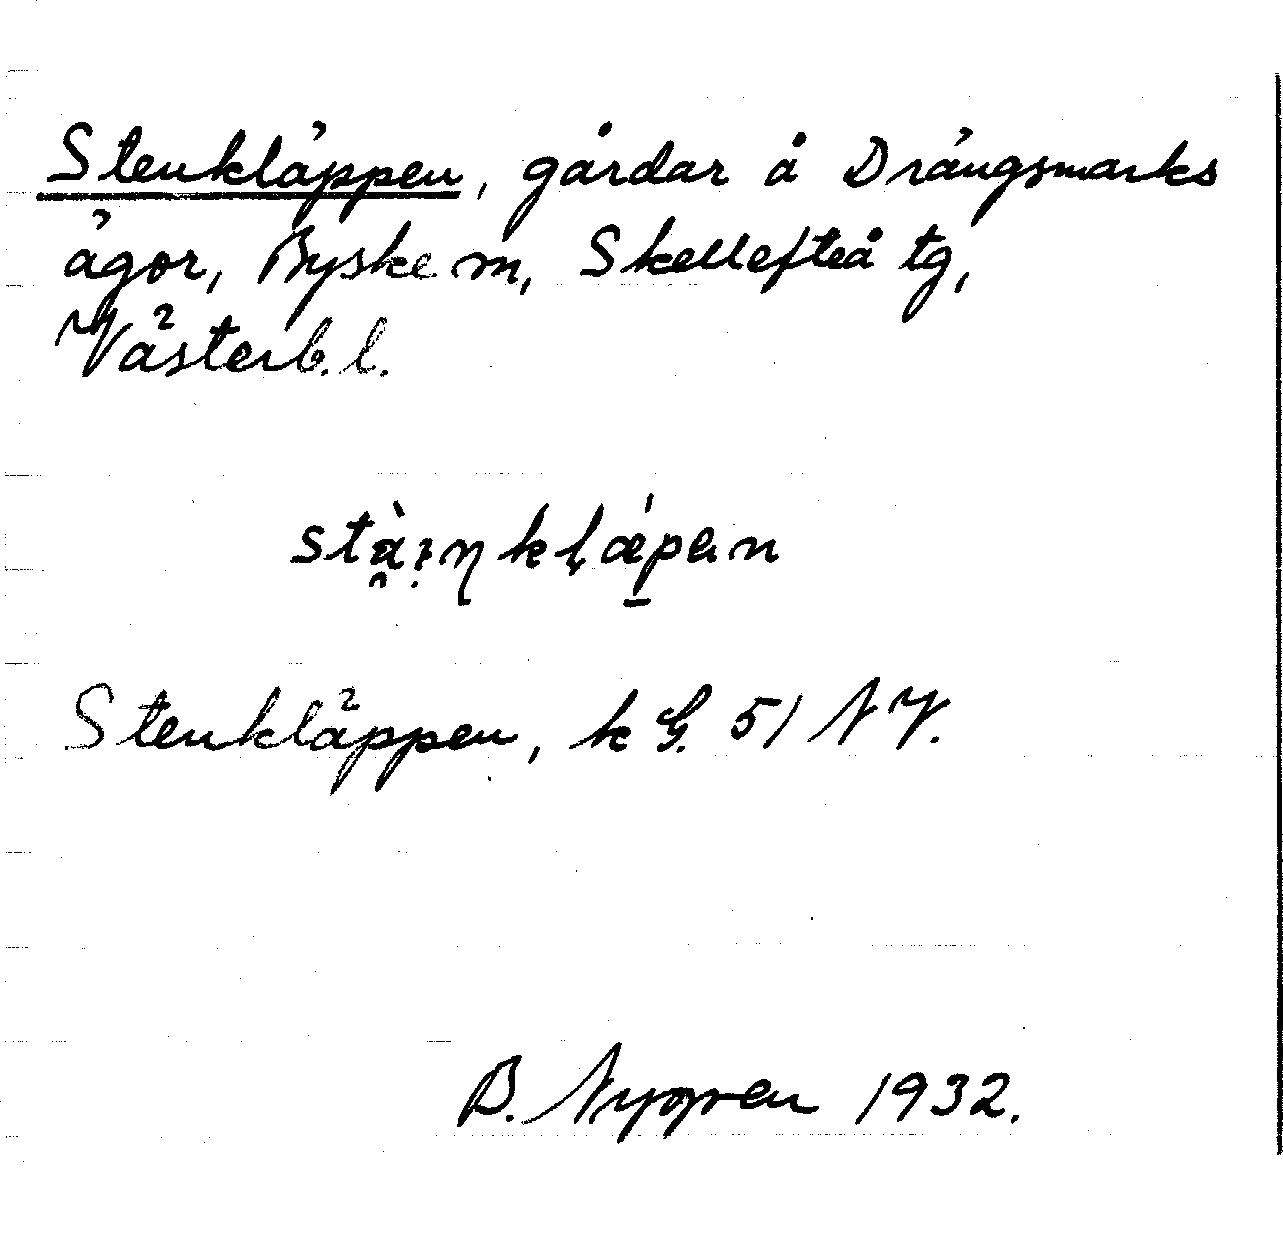 Stenkläppen, gårdar å Drängsmarks
ägor, Byske sn, Skellefteå tg,
Västerb. l.
stàɪŋkḷǽpan
Stenkläppen, k G. 51 NV.
B. Nygren 1932.